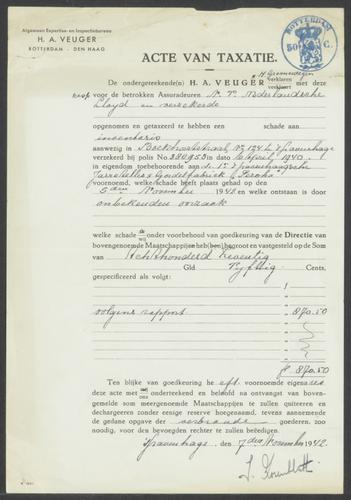 Algemeen Expertise- en Inspectiebureau
H. A. VEUGER
ROTTERDAM - DEN HAAG
ROTTERDAM
50 C.
ACTE VAN TAXATIE.
De ondergeteekende(n) H. A. VEUGER en H. Groenewegen verklaren verklaart met deze
voor de betrokken Assuradeuren N. V. Nederlandsche
Lloyd en verzekerde
opgenomen en getaxeerd te hebben een schade aan
inventaris
aanwezig in Boekhorststraat No 124 te 's-Gravenhage
verzekerd bij polis No. 380953 dato 6 April 1940.
in eigendom toebehoorende aan de 1e 's-Gravenhaagsche
Jarretelles & Gordelfabriek
voornoemd, welke schade heeft plaats gehad op den
5den November 1942 en welke ontstaan is door
onbekende oorzaak
welke schade onder voorbehoud van goedkeuring van de Directie van
bovengenoemde Maatschappijen he(b)ben begroot en vastgesteld op de Som
van Achthonderd zeventig
Gld Vyftig Cents,
gespecificeerd als volgt:
volgens rapport f 870.50
f 870.50
Ten blijke van goedkeuring he eft voornoemde eigena res
deze acte met mij ons onderteekend en belooft na ontvangst van boven-
gemelde som meergenoemde Maatschappijen te zullen quiteren en
dechargeren zonder eenige reserve hoegenaamd, tevens aannemende
de gedane opgave der verbrande goederen, zoo
noodig, voor den bevoegden rechter te zullen beëedigen.
's-Gravenhage, den 7den November 1942.